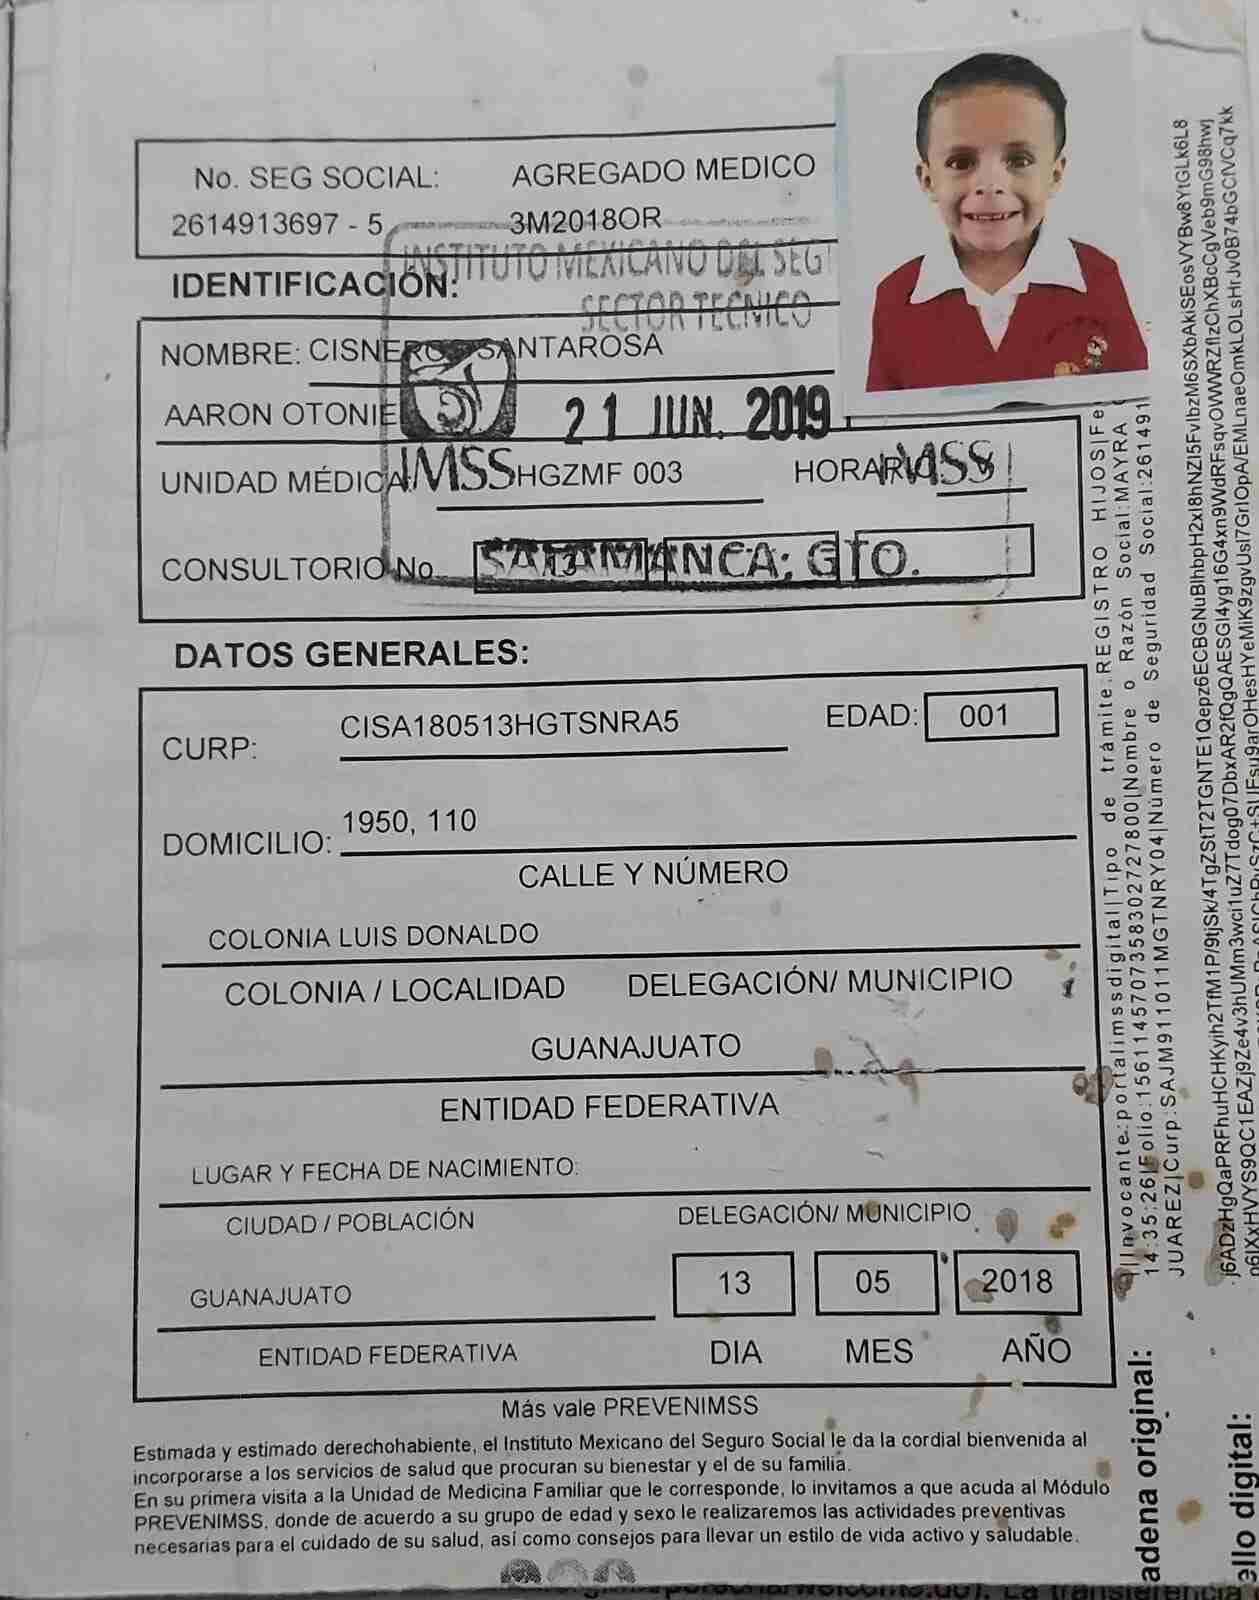 No. SEG SOCIAL: AGREGADO MEDICO
2614913697 - 5 3M2018OR
INSTITUTO MEXICANO DEL SEG
IDENTIFICACIÓN:
SECTOR TECNICO
NOMBRE: CISNEROS SANTAROSA
AARON OTONIE
21 JUN. 2019
UNIDAD MÉDICA HGZMF 003 HORARIO
IMSS IMSS
CONSULTORIO No.
SALAMANCA; GTO.
DATOS GENERALES:
CURP: CISA180513HGTSNRA5 EDAD: 001
DOMICILIO: 1950, 110
CALLE Y NÚMERO
COLONIA LUIS DONALDO
COLONIA / LOCALIDAD DELEGACIÓN/ MUNICIPIO
GUANAJUATO
ENTIDAD FEDERATIVA
LUGAR Y FECHA DE NACIMIENTO:
CIUDAD / POBLACIÓN DELEGACIÓN/ MUNICIPIO
GUANAJUATO 13 05 2018
ENTIDAD FEDERATIVA DIA MES AÑO
Más vale PREVENIMSS
Estimada y estimado derechohabiente, el Instituto Mexicano del Seguro Social le da la cordial bienvenida al
incorporarse a los servicios de salud que procuran su bienestar y el de su familia.
En su primera visita a la Unidad de Medicina Familiar que le corresponde, lo invitamos a que acuda al Módulo
PREVENIMSS, donde de acuerdo a su grupo de edad y sexo le realizaremos las actividades preventivas
necesarias para el cuidado de su salud, así como consejos para llevar un estilo de vida activo y saludable.
adena original:
||Invocante:portalimssdigital|Tipo de trámite:REGISTRO HIJOS|Fe
14:35:26|Folio:1561145707358302727800|Nombre o Razón Social:MAYRA
JUAREZ|Curp:SAJM911011MGTNRY04|Número de Seguridad Social:261491
ello digital: